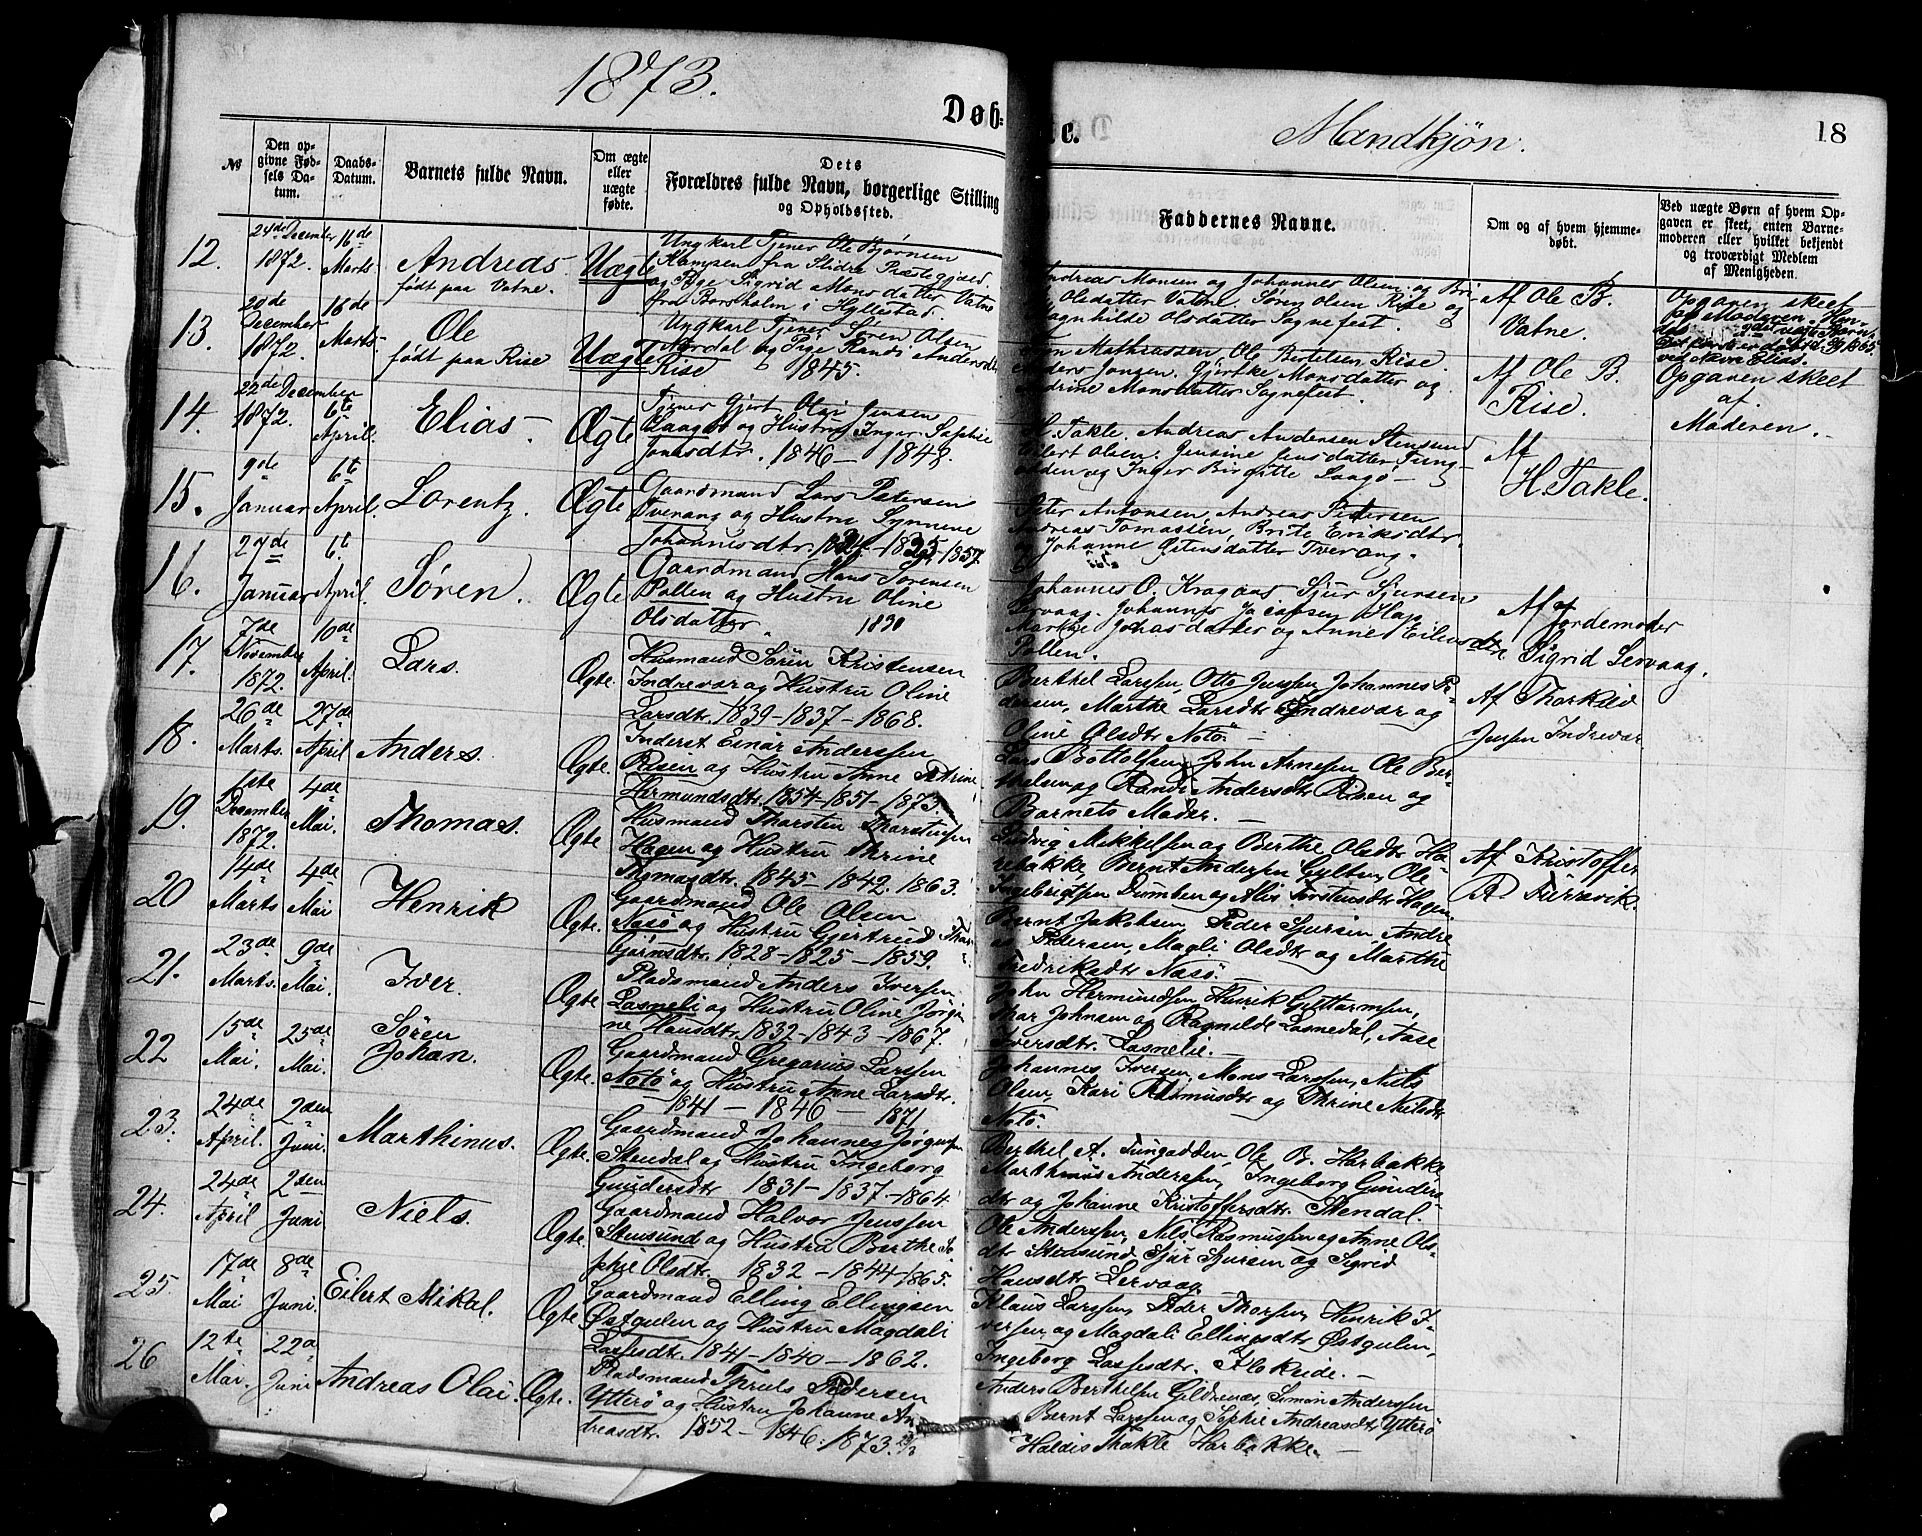 1873.
Døb-
te.
Mandkjøn.
18
№
Den op-
givne Fød-
sels Da-
tum.
Daabs-
Datum.
Barnets fulde Navn.
Om ægte
eller
uægte
fødte.
Dets
Forældres fulde Navn, borgerlige Stilling
og Opholdssted.
Faddernes Navne.
Om og af hvem hjemme-
døbt.
Ved uægte Børn af hvem Op-
gaven er skeet, enten Barne-
moderen eller hvilket bekjendt
og troværdigt Medlem
af Menigheden.
12.
24de December
1872.
16de
Marts
Andreas
født paa Vatne.
Uægte
Ungkarl Tjener Ole Bjørnsen
Hamsen fra Slidre Præstegjæld
og Pige Sigrid Monsdatter Vatne
fra Borsholm i Hyllestad.
Andreas Monsen og Johannes Olsen og
Olsdatter Vatne. Søren Olsen Rise og
Magnhilde Olsdatter Sognefest.
Af Ole B.
Vatne.
Opgaven skeet
af Moderen.
13.
20de
December
1872.
16de
Marts.
Ole
født paa Rise
Uægte
Ungkarl Tjener Søren Olsen
Nordal og Pige Randi Andersdtr
Rise 1845.
Mathiassen, Ole Bertelsen Rise.
Anders Jonsen. Gjertke Monsdatter og
Monsdatter Sognefest.
Af Ole B.
Rise.
Opgaven skeet
af
Moderen.
14.
22de December
1872.
6te
April.
Elias.
Ægte
Tjener Gjert Olai Jensen
Laagø og Hustru Inger Sophie
Jonasdtr. 1846 — 1849.
H. Takle. Andreas Andersen Stensund
Eilert Olsen. Jensine Jensdatter Tung-
odden og Inger Birgitte Laagø —
Af
H. Takle.
15.
9de
Januar
6te
April.
Lorentz.
Ægte
Gaardmand Lars Petersen
Tverang og Hustru Synneve
Johannisdtr. 1824 - 1825 - 1857.
Peter Antonsen, Andreas Petersen
Andreas Tomassen, Brite Eriksdtr.
og Johanne Ostensdatter Tverang.
16.
27de
Januar
6te
April.
Søren.
Ægte
Gaardmand Hans Sørensen
Pollen og Hustru Oline
Olsdatter 1830
Johannes O. Kragaas Sjur Sjursen
Lervaag. Johannes Jacobsen Hop
Marthe Johasdatter og Anne Eilertsdtr
Pollen.
Af Jordemoder
Sigrid Lervaag.
17.
7de
November
1872.
10de
April.
Lars.
Ægte.
Husmand Søren Kristensen
Indrevær og Hustru Oline
Larsdtr. 1839 - 1837 - 1868.
Berthel Larssen, Otto Jenssen, Johannes Pe-
dersen, Marthe Larsdtr Indrevær og
Oline Olsdtr Notø. —
Af Thorkild
Jensen Indrevær
18.
26de
Marts.
27de
April
Anders.
Ægte.
Inderst Einar Anderssen
Risen og Hustru Anne Petrine
Hermundsdtr. 1854 - 1851 - 1873.
Lars Bottolfsen, John Arnesen Ole Ber-
thelsen og Randi Andersdtr Risen og
Barnets Moder. —
19.
1ste
December
1872.
4de
Mai.
Thomas.
Ægte
Husmand Thorsten Thorstensen
Hagen og Hustru Thrine
Thomasdtr. 1845 - 1842. 1863.
Ludvig Mikkelsen og Berthe Olsdtr Ha-
rebakke, Bernt Andersen Gylten, Ole
Ingebrigtsen Dumben og Alis Torstensdtr Hagen.
Af Kristoffer
A
20
14de
Marts
4de
Mai
Henrik
Ægte.
Gaardmand Ole Olsen
Nasø og Hustru Gjertrud Thor-
bjørnsdtr. 1828 - 1825 - 1859.
Bernt Jakobsen, Peder Sjursen, Andre
as Pedersen, Magli Olsdtr og Marthe
Fredriksdtr Nasø.
21.
23de
Marts.
9de
Mai.
Iver.
Ægte
Pladsmand Anders Iversen
Lasneli og Hustru Oline Jørgi
ne Hansdtr. 1832 - 1843 - 1867.
John Hermundsen, Henrik Guttormsen,
Ivar Johnsen og Ragnilde Losnedal, Aase
Iversdtr. Lasnelie. —
22
15de
Mai.
25de
Mai.
Søren
Johan.
Ægte.
Gaardmand Gregorius Larssen
Notø og Hustru Anne Larsdtr.
1841 — 1846 — 1871
Johannes Iversen, Mons Larssen, Niels
Olsen, Kari Rasmusdtr og Thrine Nielsdtr
Notø.
23.
24de
April.
2den
Juni.
Marthinus.
Ægte.
Gaardmand Johannes Jørgensen
Stendal og Hustru Ingeborg
Gundersdtr 1831 - 1837 - 1864.
Berthel A. Tungodden, Ole B. Harbakke
Marthinus Anderssen, Ingeborg Gunders
dtr og Johanne Kristoffersdtr. Stendal.
24.
24de
April
2den
Juni
Niels.
Ægte.
Gaardmand Halvor Jenssen
Stensund og Hustru Berthe So
phie Olsdtr. 1832 - 1844 - 1865.
Ole Anderssen, Nils Rasmussen og Anne Ols-
dtr Stensund Sjur Sjursen og Sigrid
Hansdtr Lervaag.
25.
17de
Mai
8de
Juni.
Eilert Mikal.
Ægte
Gaardmand Elling Ellingsen
Østgulen og Hustru Magdali
Lassesdtr. 1841 - 1840 - 1862.
Klaus Larssen, Peder Thorsen, Henrik I-
versen og Magdali Ellingsdtr Østgulen,
Ingeborg Lassesdtr. Flokeide. —
26
12te
Mai.
22de
Juni
Andreas Olai.
Ægte.
Pladsmand Truels Pedersen
Ytterø og Hustru Johanne An
dreasdtr. 1852 - 1846: 1873.
Anders Berthelsen Gildrenæs, Simon Anderssen
Bernt Larssen og Sophie Andreasdtr Ytterø
Haldis Thakle Harbakke. —